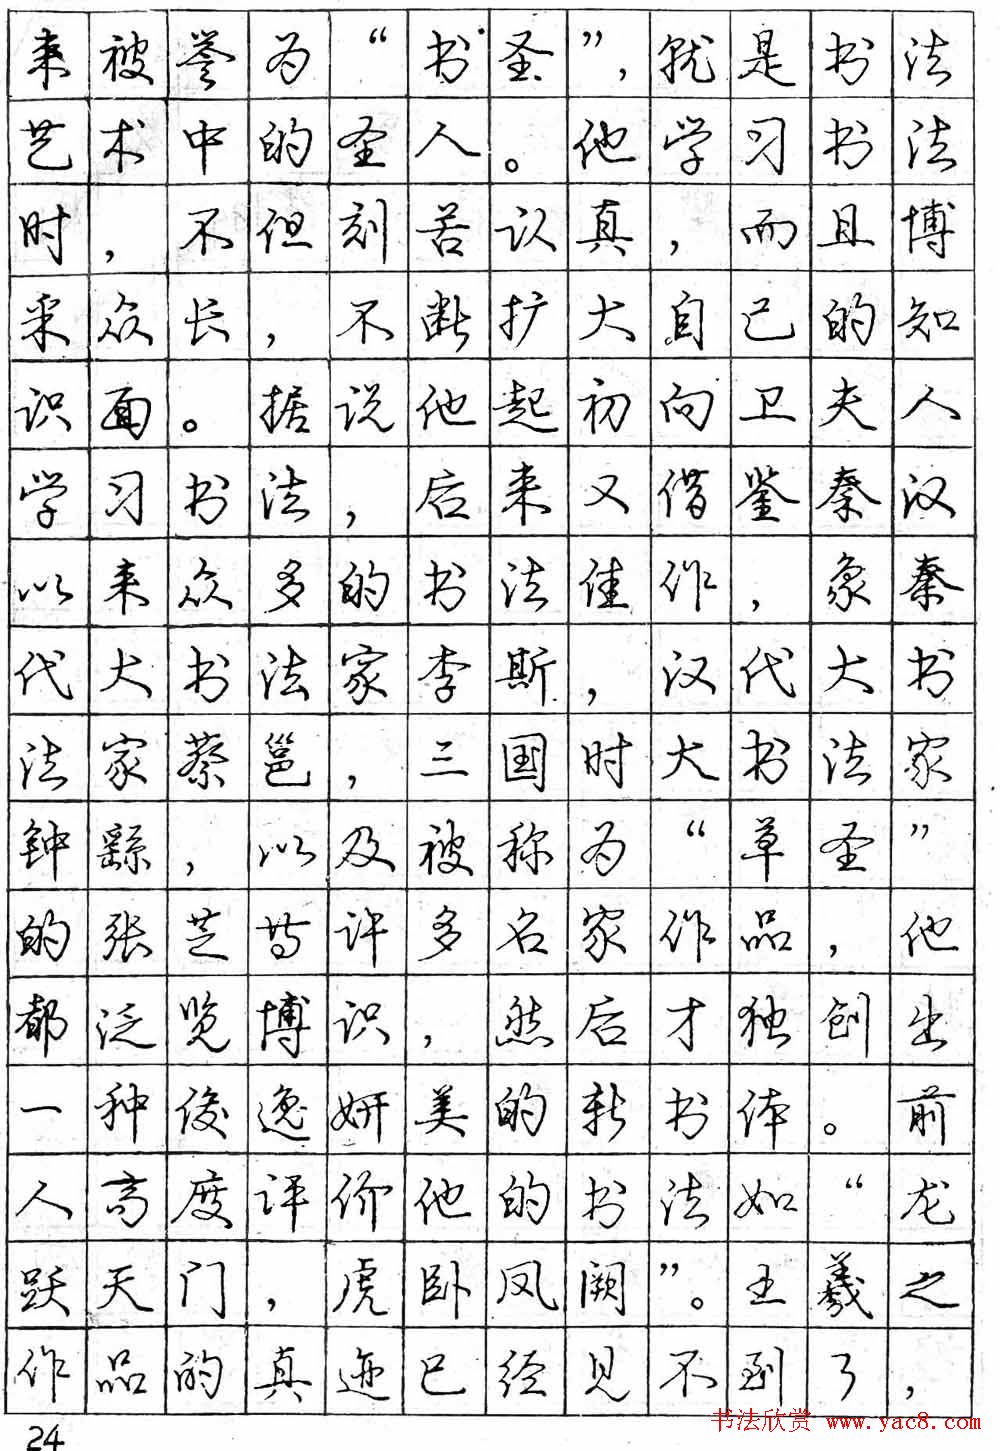 来被誉为“书圣”，就是书法
艺术中的圣人。他学习书法
时，不但刻苦认真，而且博
采众长，不断扩大自己的知
识面。据说他起初向卫夫人
学习书法，后来又借鉴秦汉
以来众多的书法佳作，象秦
代大书法家李斯，汉代大书
法家蔡邕，三国时大书法家
钟繇，以及被称为“草圣”
的张芝等许多名家作品，他
都泛览博识，然后才独创出
一种俊逸妍美的新书体。前
人高度评价他的书法如“龙
跃天门，虎卧凤阙”。王羲之
作品的真迹已经见不到了，
24
书法欣赏 www.yac8.com